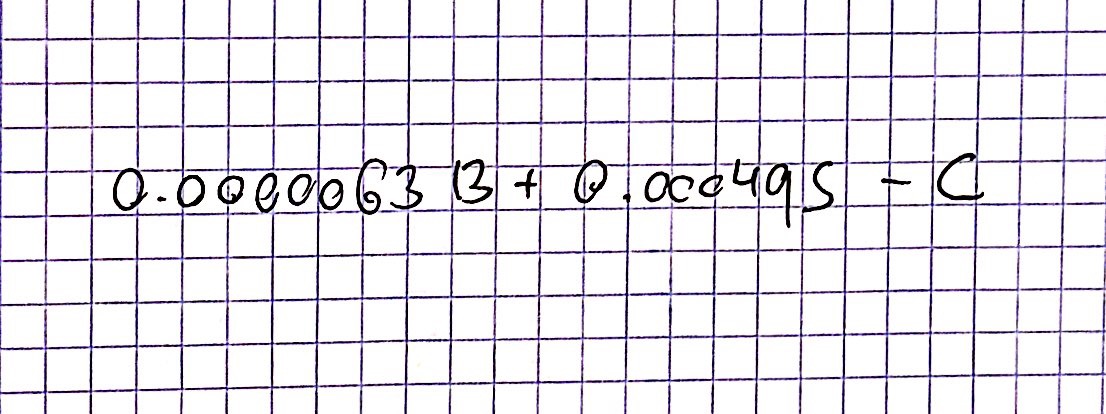 0.0000063 B + 0.00049 S - C